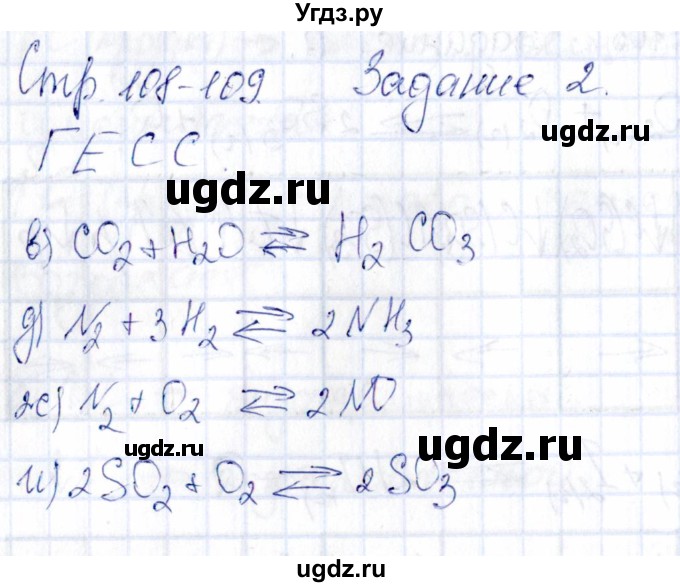 Угдз.ру
Стр. 108-109. Задание 2.
ugdz.ru
ГЕСС.
ugdz.ru
в) CO₂ + H₂O ⇄ H₂CO₃
д) N₂ + 3H₂ ⇄ 2NH₃
ж) N₂ + O₂ ⇄ 2NO
ugdz.ru
ugdz.ru
и) 2SO₂ + O₂ ⇄ 2SO₃
ugdz.ru
ugdz.ru